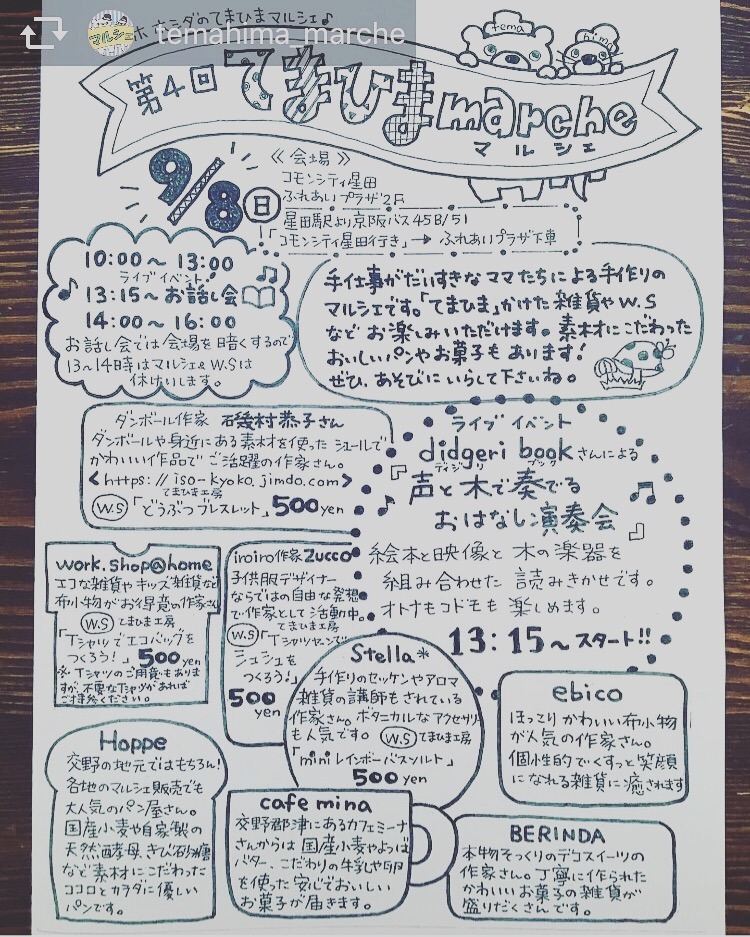 temahima_marche
ホシダのてまひまマルシェ♪
マルシェ
tema
hima
第4回 てまひま marche
マルシェ
9/8 日
《会場》
コモンシティ星田
ふれあいプラザ2F
星田駅より京阪バス45B/51
「コモンシティ星田行き」→ ふれあいプラザ下車
10:00〜13:00
ライブイベント!
13:15〜お話し会
14:00〜16:00
お話し会では会場を暗くするので
13〜14時はマルシェ&W.Sは
休けいします。
手仕事がだいすきなママたちによる手作りの
マルシェです。「てまひま」かけた雑貨やW.S
など お楽しみいただけます。素材にこだわった
おいしいパンやお菓子もあります!
ぜひ、あそびにいらして下さいね。
ダンボール作家 磯村恭子さん
ダンボールや身近にある素材を使った シュールで
かわいい作品でご活躍の作家さん。
<https://iso-kyoko.jimdo.com>
てまひま工房
W.S「どうぶつブレスレット」500yen
ライブイベント
didgeri bookさんによる
ディジュリ ブック
『声と木で奏でる
おはなし演奏会』
絵本と映像と木の楽器を
組み合わせた 読みきかせです。
オトナもコドモも 楽しめます。
13:15〜スタート!!
work.shop@home
エコな雑貨やキッズ雑貨など
布小物がお得意の作家さん
W.S てまひま工房
「Tシャツでエコバッグを
つくろう!」500yen
※Tシャツのご用意もありま
すが、不要なTシャツがあれば
ご持参ください。
iroiro作家Zucco
子供服デザイナー
ならではの自由な発想
で作家として活動中。
てまひま工房
W.S「Tシャツヤーンで
シュシュを
つくろう!」
500
yen
Stella*
手作りのせっけんやアロマ
雑貨の講師もされている
作家さん。ボタニカルなアクセサリー
も人気です。W.S てまひま工房
「miniレインボーバスソルト」
500yen
ebico
ほっこりかわいい布小物
が人気の作家さん。
個性的でくすっと笑顔
になれる雑貨に癒されます
Hoppe
交野の地元ではもちろん!
各地のマルシェ販売でも
大人気のパン屋さん。
国産小麦や自家製の
天然酵母、きび砂糖
など素材にこだわった
ココロとカラダに優しい
パンです。
cafe mina
交野郡津にあるカフェミーナ
さんからは 国産小麦やよつば
バター、こだわりの牛乳や卵
を使った 安心でおいしい
お菓子が届きます。
BERINDA
本物そっくりのデコスイーツの
作家さん。丁寧に作られた
かわいいお菓子の雑貨が
盛りだくさんです。